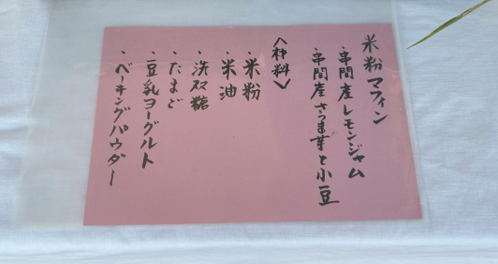 米粉マフィン
・串間産レモンジャム
・串間産さつま芋と小豆
〈材料〉
・米粉
・米油
・洗双糖
・たまご
・豆乳ヨーグルト
・ベーキングパウダー